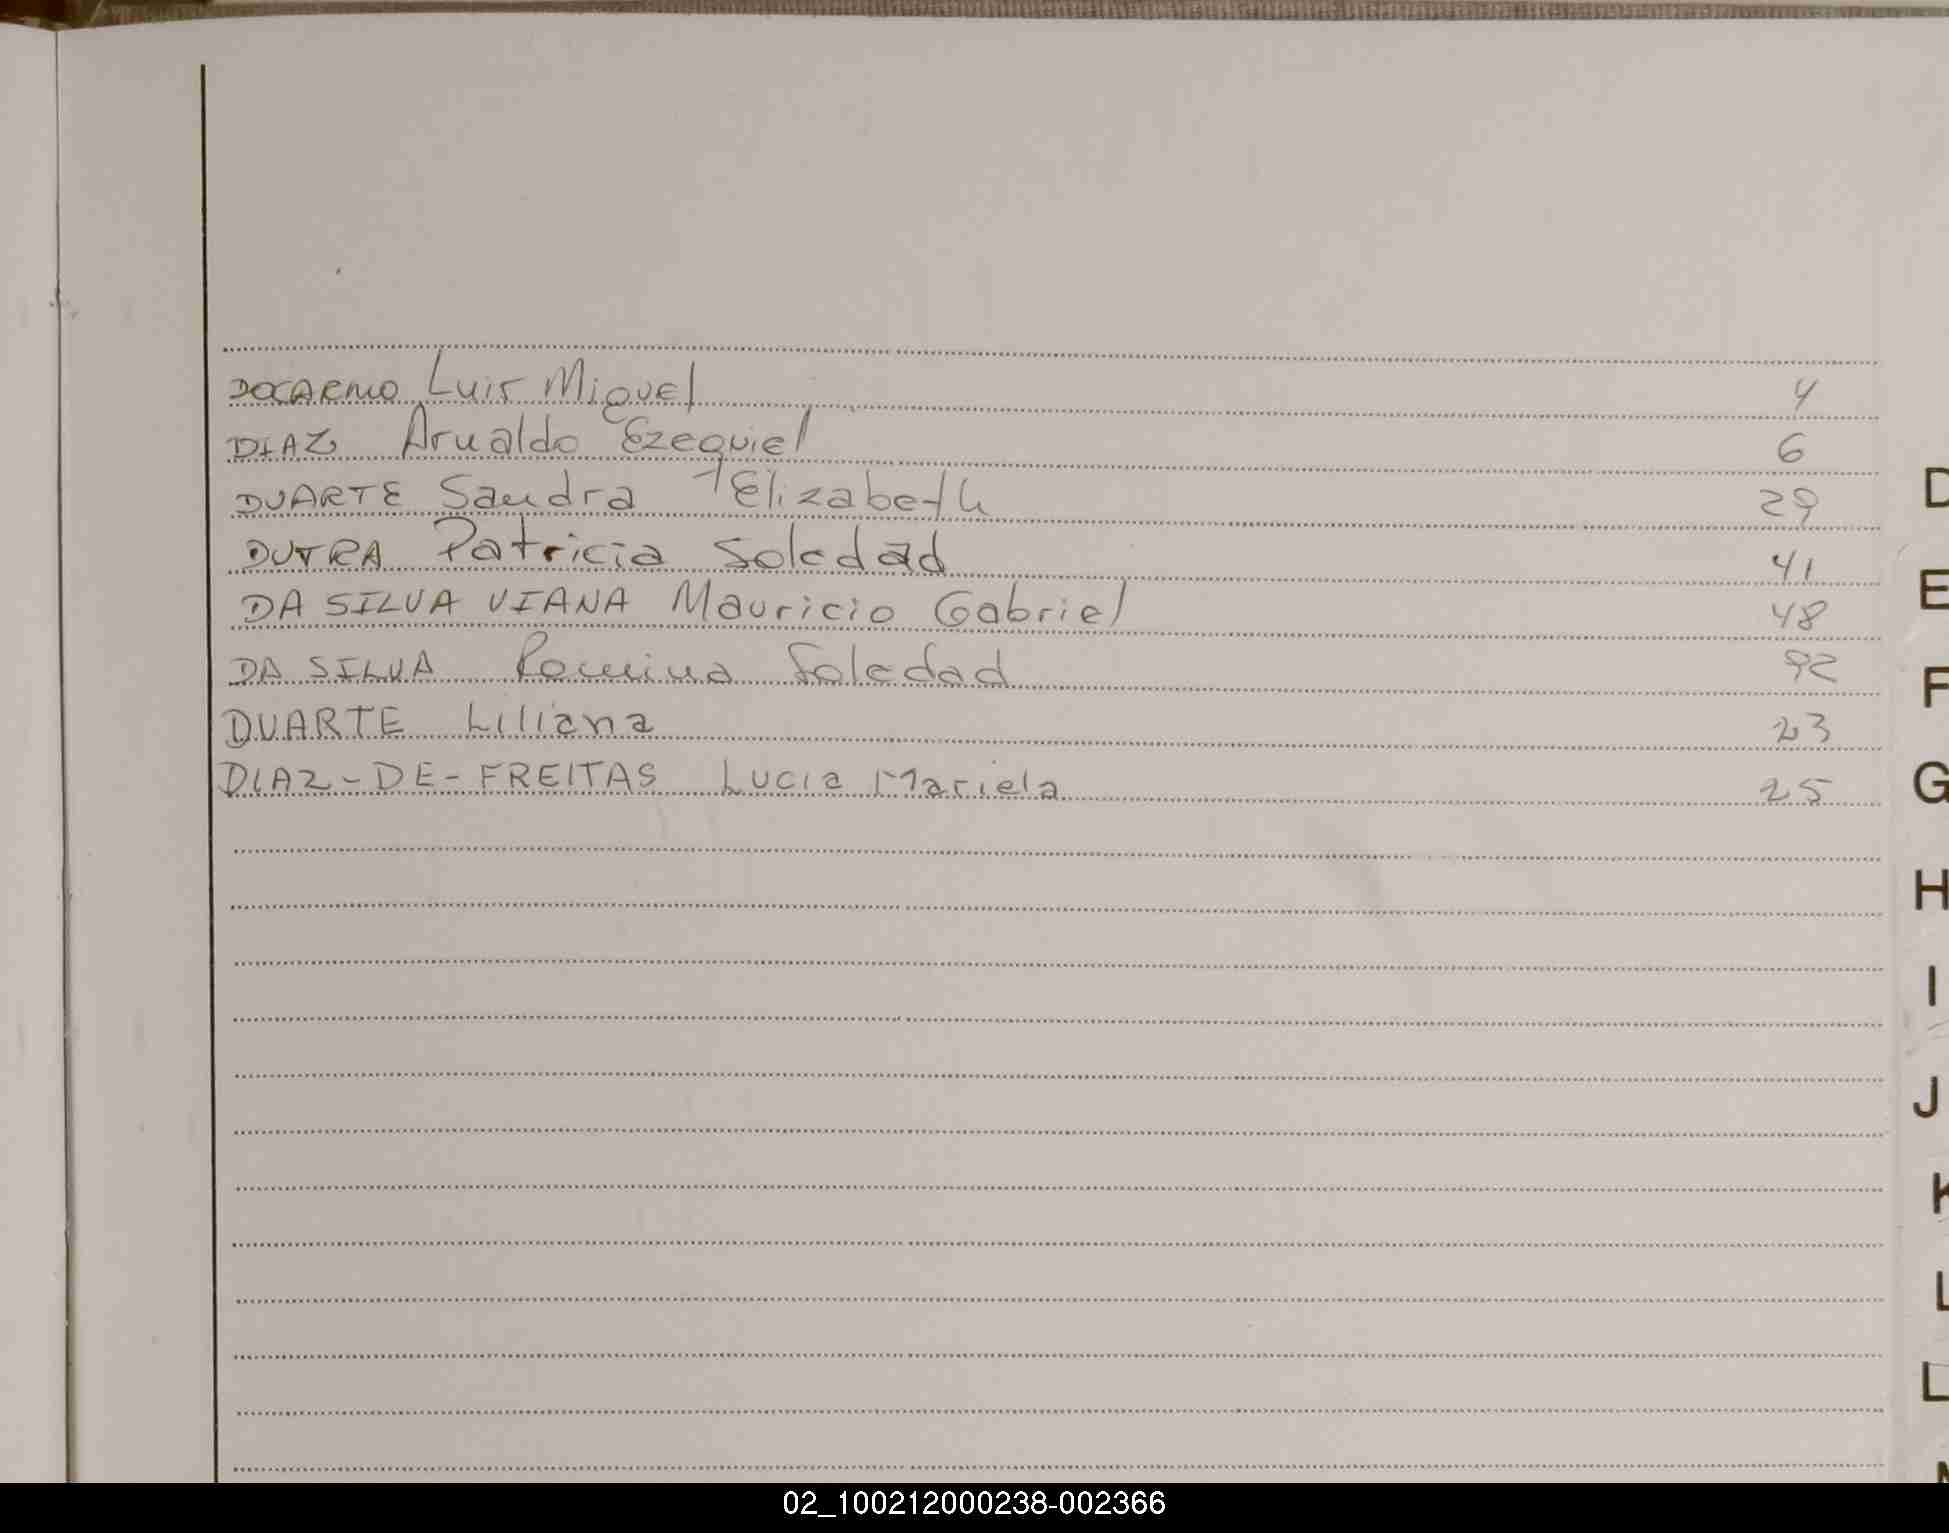 DOCARMO Luis Miguel 4
DIAZ Arnaldo Ezequiel 6
DUARTE Sandra Elizabeth 29
DUTRA Patricia Soledad 41
DA SILVA VIANA Mauricio Gabriel 48
DA SILVA Romina Soledad 92
DUARTE Liliana 23
DIAZ-DE-FREITAS Lucia Mariela 25
D
E
F
G
H
I
J
K
L
02_100212000238-002366